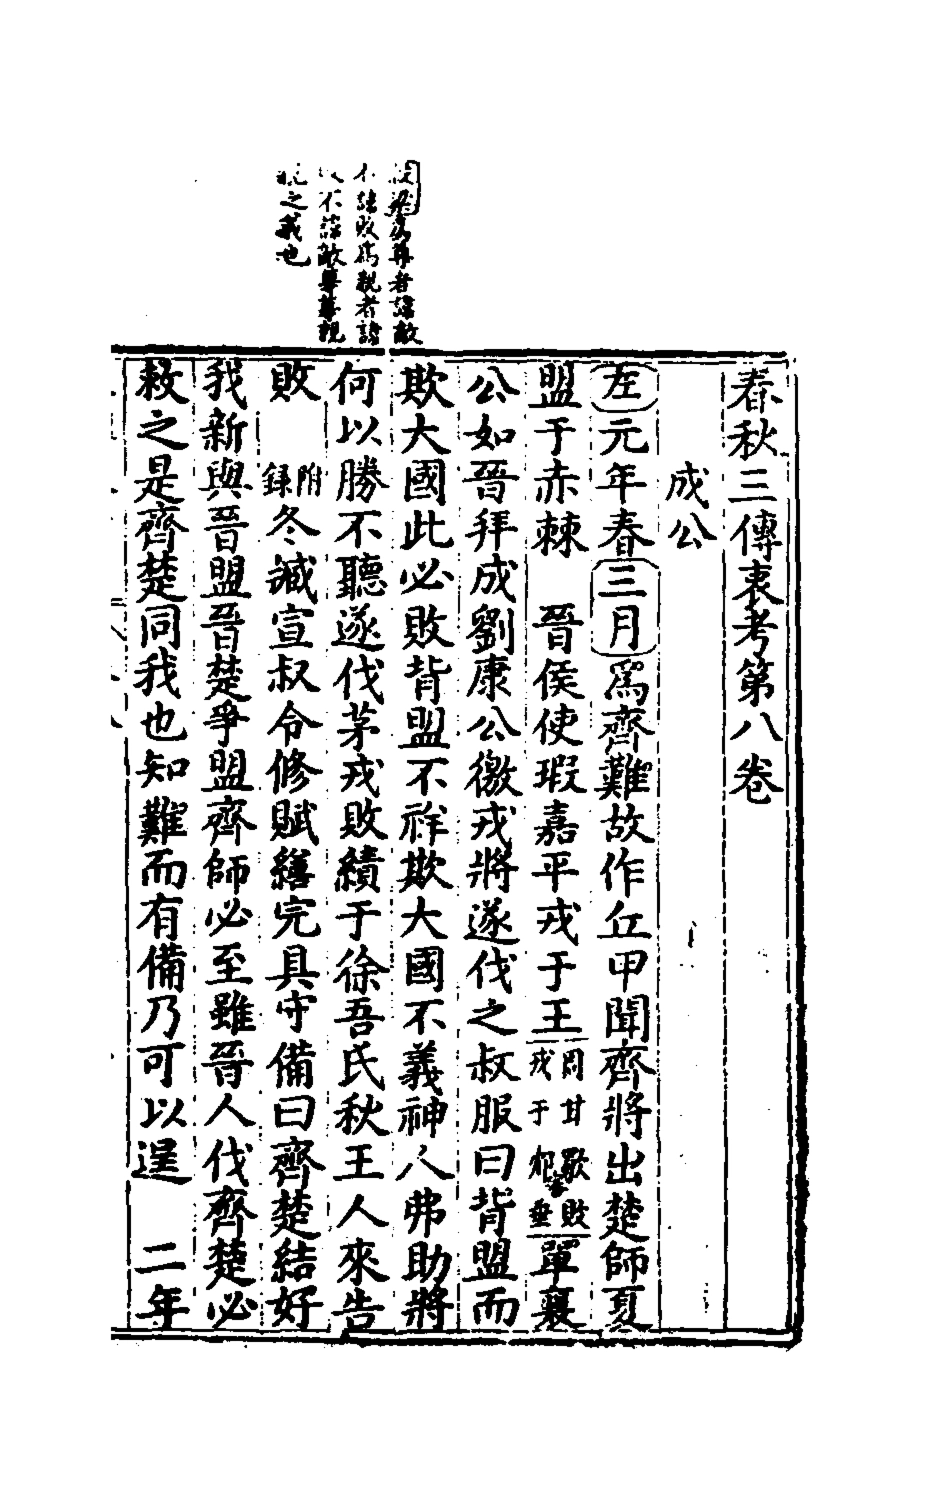 梁為尊者諱敵
不諱敗為親者諱
不諱敵尊尊親
親之義也
春秋三傳衷考第八卷
成公
左元年春三月爲齊難故作丘甲聞齊將出楚師夏
盟于赤棘　晉侯使瑕嘉平戎于王周甘歜敗戎于邥審垂單襄
公如晉拜成劉康公徼戎將遂伐之叔服曰背盟而
欺大國此必敗背盟不祥欺大國不義神人弗助將
何以勝不聽遂伐茅戎敗績于徐吾氏秋王人來告
敗　附錄冬臧宣叔令修賦繕完具守備曰齊楚結好
我新與晉盟晉楚爭盟齊師必至雖晉人伐齊楚必
救之是齊楚同我也知難而有備乃可以逞　二年